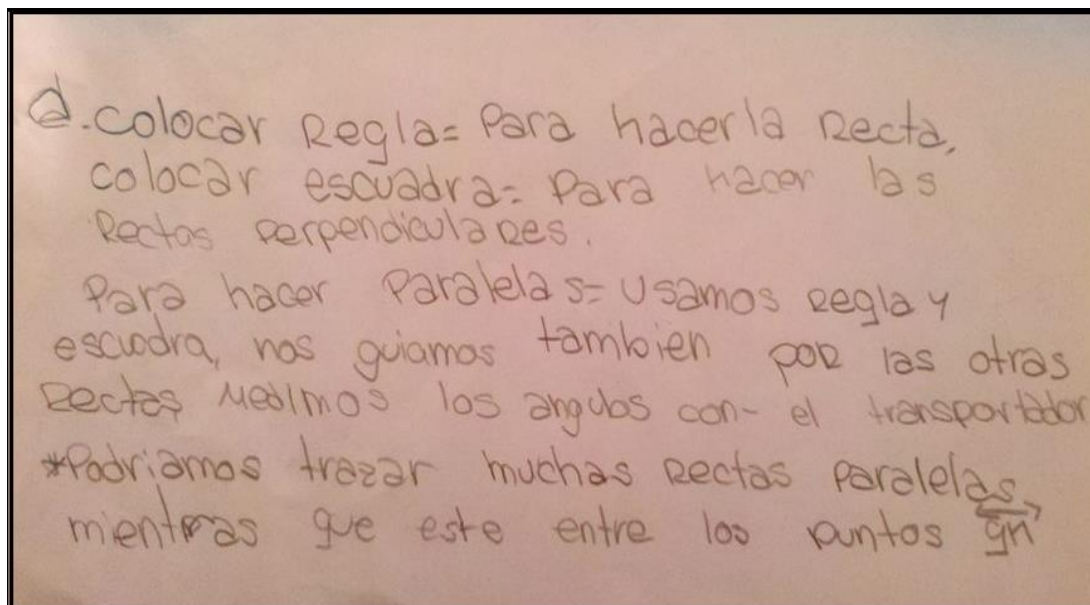 d. Colocar Regla= Para hacer la Recta,
colocar escuadra= Para hacer las
Rectas perpendiculaRes.
Para hacer Paralelas= Usamos Regla y
escuadra, nos guiamos tambien poR las otras
Rectas Medimos los angulos con- el transportador
*Podriamos trazar muchas Rectas Paralelas
mientras que este entre los puntos